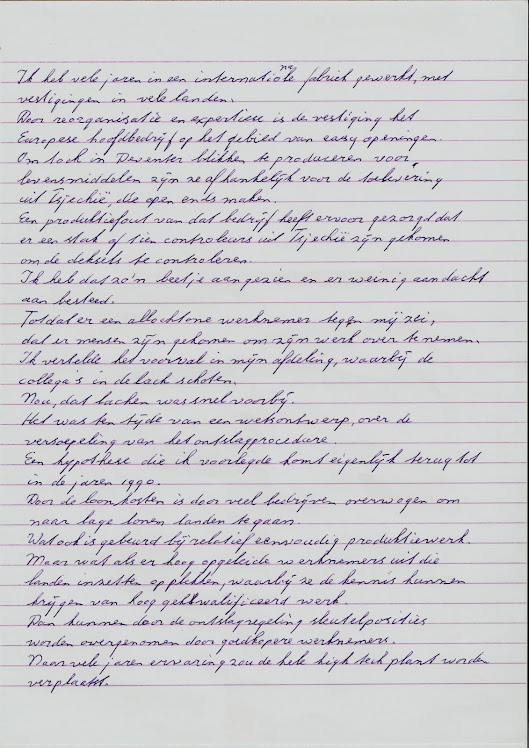 Ik heb vele jaren in een internationale fabriek gewerkt, met
vestigingen in vele landen.
Door reorganisatie en expertiese is de vestiging het
Europese hoofdbedrijf op het gebied van easy openingen.
Om toch in Deventer blikken te produceren voor
levensmiddelen zijn ze afhankelijk voor de toelevering
uit Tsjechië, die open ends maken.
Een produktiefout van dat bedrijf heeft ervoor gezorgd dat
er een stuk of tien controleurs uit Tsjechië zijn gekomen
om de deksels te controleren.
Ik heb dat zo'n beetje aangezien en er weinig aandacht
aan besteed.
Totdat er een allochtone werknemer tegen mij zei,
dat er mensen zijn gekomen om zijn werk over te nemen.
Ik vertelde het voorval in mijn afdeling, waarbij de
collega's in de lach schoten.
Nou, dat lachen was snel voorbij.
Het was ten tijde van een wetsontwerp, over de
versoepeling van het ontslagprocedure
Een hypothese die ik voorlegde komt eigenlijk terug tot
in de jaren 1990.
Door de loonkosten is door veel bedrijven overwogen om
naar lage lonen landen te gaan.
Wat ook is gebeurd bij relatief eenvoudig produktiewerk.
Maar wat als er hoog opgeleide werknemers uit die
landen inzetten op plekken, waarbij ze de kennis kunnen
krijgen van hoog gekwalificeerd werk.
Dan kunnen door de ontslagregeling sleutelposities
worden overgenomen door goedkopere werknemers.
Naar vele jaren ervaring zou de hele high tech plant worden
verplaatst.